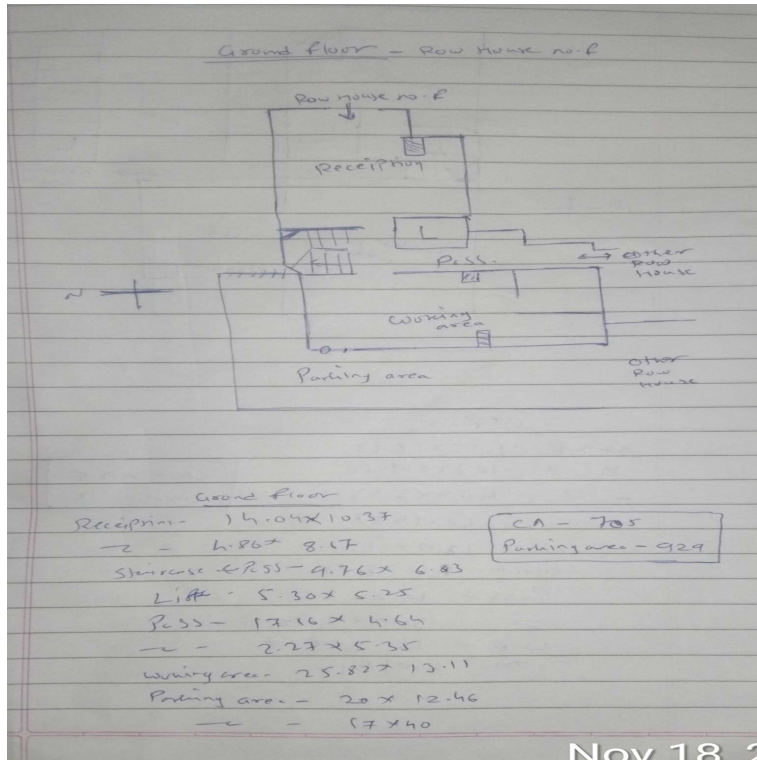 Ground floor - Row House no-f
Row House no-f
Receiption
L
Pass.
other
Row
House
N
working
area
Parking area
other
Row
House
Ground floor
Receiption - 14.04×10.37
- 4.86× 8.17
Staircase & Pass - 9.76 ×
Lift - 5.30× 5.25
Pass - 17.16 × 4.64
- 2.27×5.35
working area - 25.82× 13.11
Parking area - 20 × 12.46
- 17×40
CA - 705
Parking area - 929
Nov 18, 2